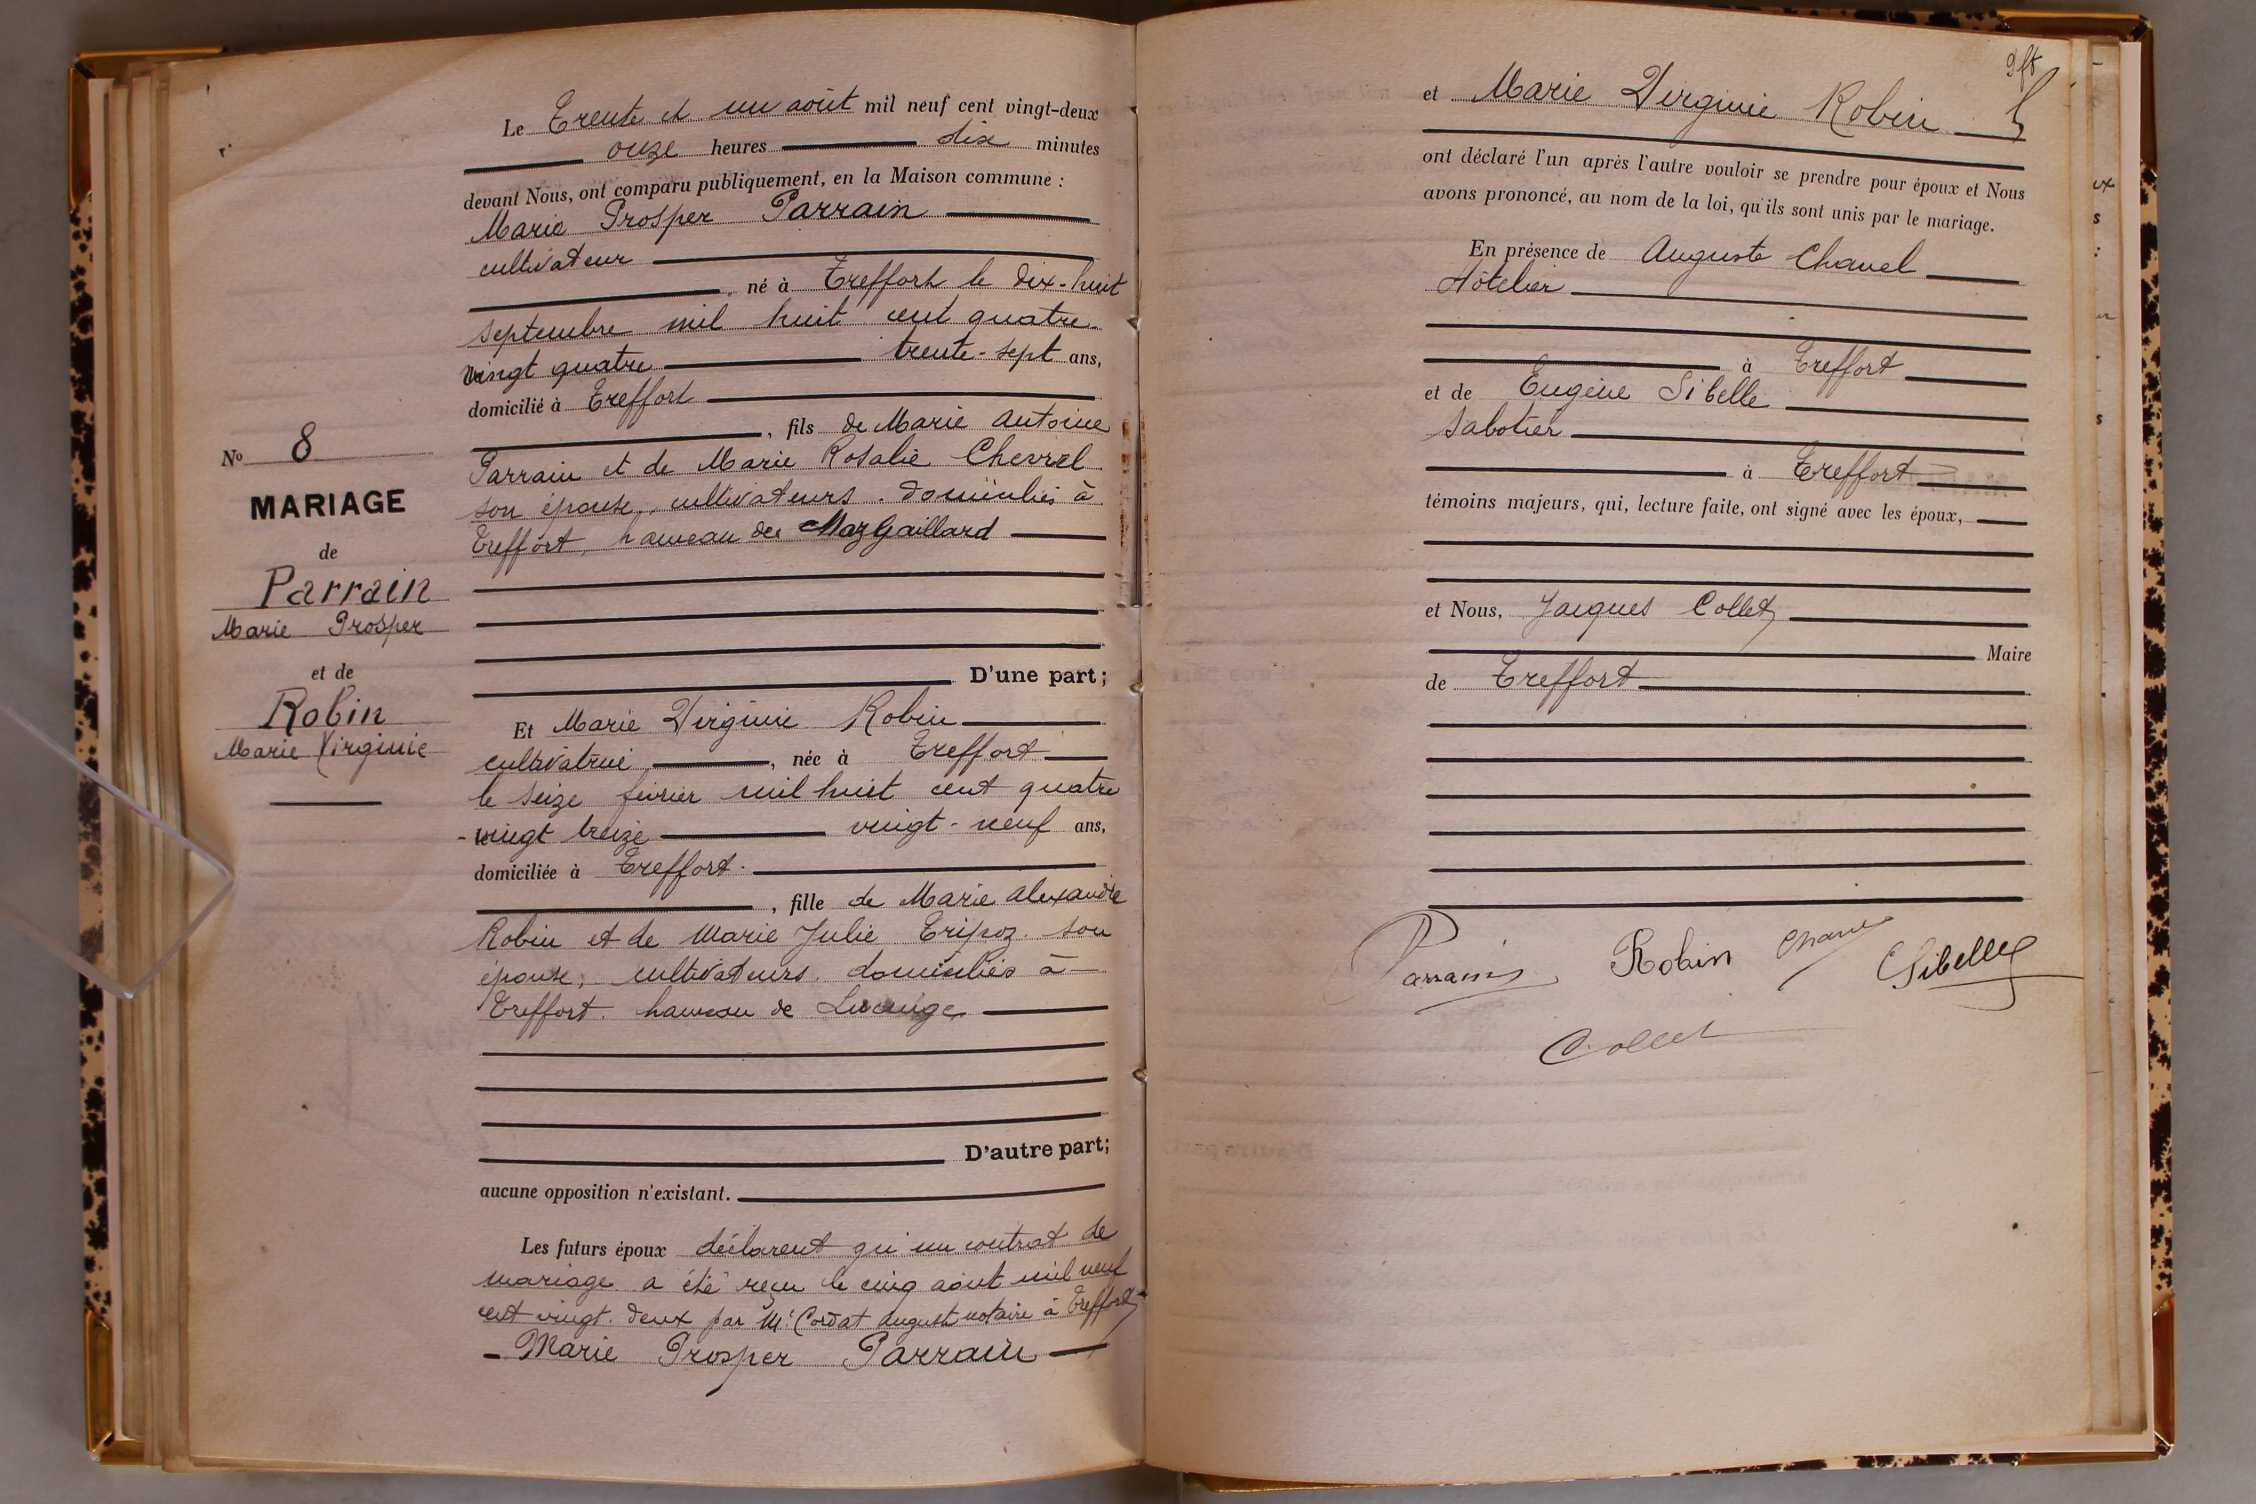 N° 8
MARIAGE
de
Parrain
Marie Prosper
et de
Robin
Marie Virginie
Le Trente et un août mil neuf cent vingt-deux
onze heures dix minutes
devant Nous, ont comparu publiquement, en la Maison commune :
Marie Prosper Parrain
cultivateur
, né à Treffort le dix-huit
septembre mil huit cent quatre-
vingt quatre trente-sept ans,
domicilié à Treffort
, fils de Marie Antoine
Parrain et de Marie Rosalie Chevrel
son épouse, cultivateurs domiciliés à
Treffort, hameau de Mazgaillard
D'une part;
Et Marie Virginie Robin
cultivatrice, née à Treffort
le seize février mil huit cent quatre
-vingt treize vingt-neuf ans,
domiciliée à Treffort.
, fille de Marie Alexandre
Robin et de Marie Julie Tripoz son
épouse, cultivateurs domiciliés à
Treffort. hameau de
D'autre part;
aucune opposition n'existant.
Les futurs époux déclarent qu'un contrat de
mariage a été reçu le cinq août mil neuf
cent vingt-deux par Me Cordat August notaire à Treffort
- Marie Prosper Parrain -
et Marie Virginie Robin
ont déclaré l'un après l'autre vouloir se prendre pour époux et Nous
avons prononcé, au nom de la loi, qu'ils sont unis par le mariage.
En présence de Auguste Chanel
Hôtelier
à Treffort
et de Eugène Sibelle
Sabotier
à Treffort
témoins majeurs, qui, lecture faite, ont signé avec les époux,
et Nous, Jacques Collet
Maire
de Treffort
Parrain Robin Chanel Sibelle
Collet